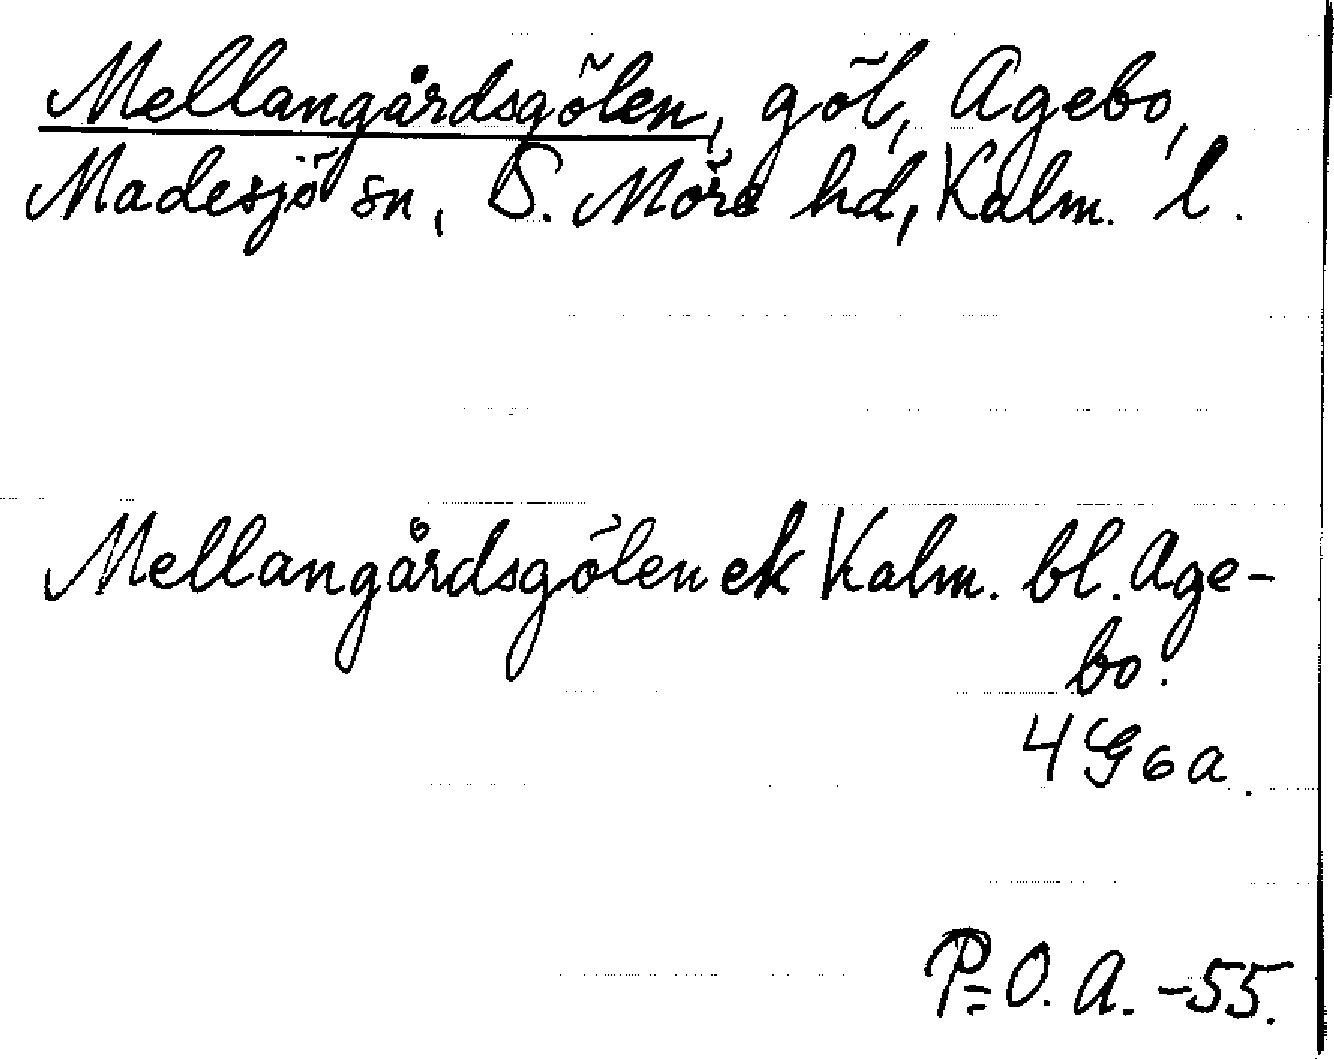 Mellangårdsgölen, göl, Agebo,
Madesjö sn, S. Möre hd, Kalm. l.
Mellangårdsgölen ek Kalm. bl. Age-
bo.
4 G 6 a.
P=O. A. -55.